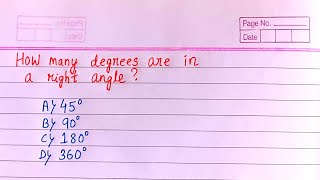 Page No.
Date
How many degrees are in
a right angle?
A) 45°
B) 90°
C) 180°
D) 360°